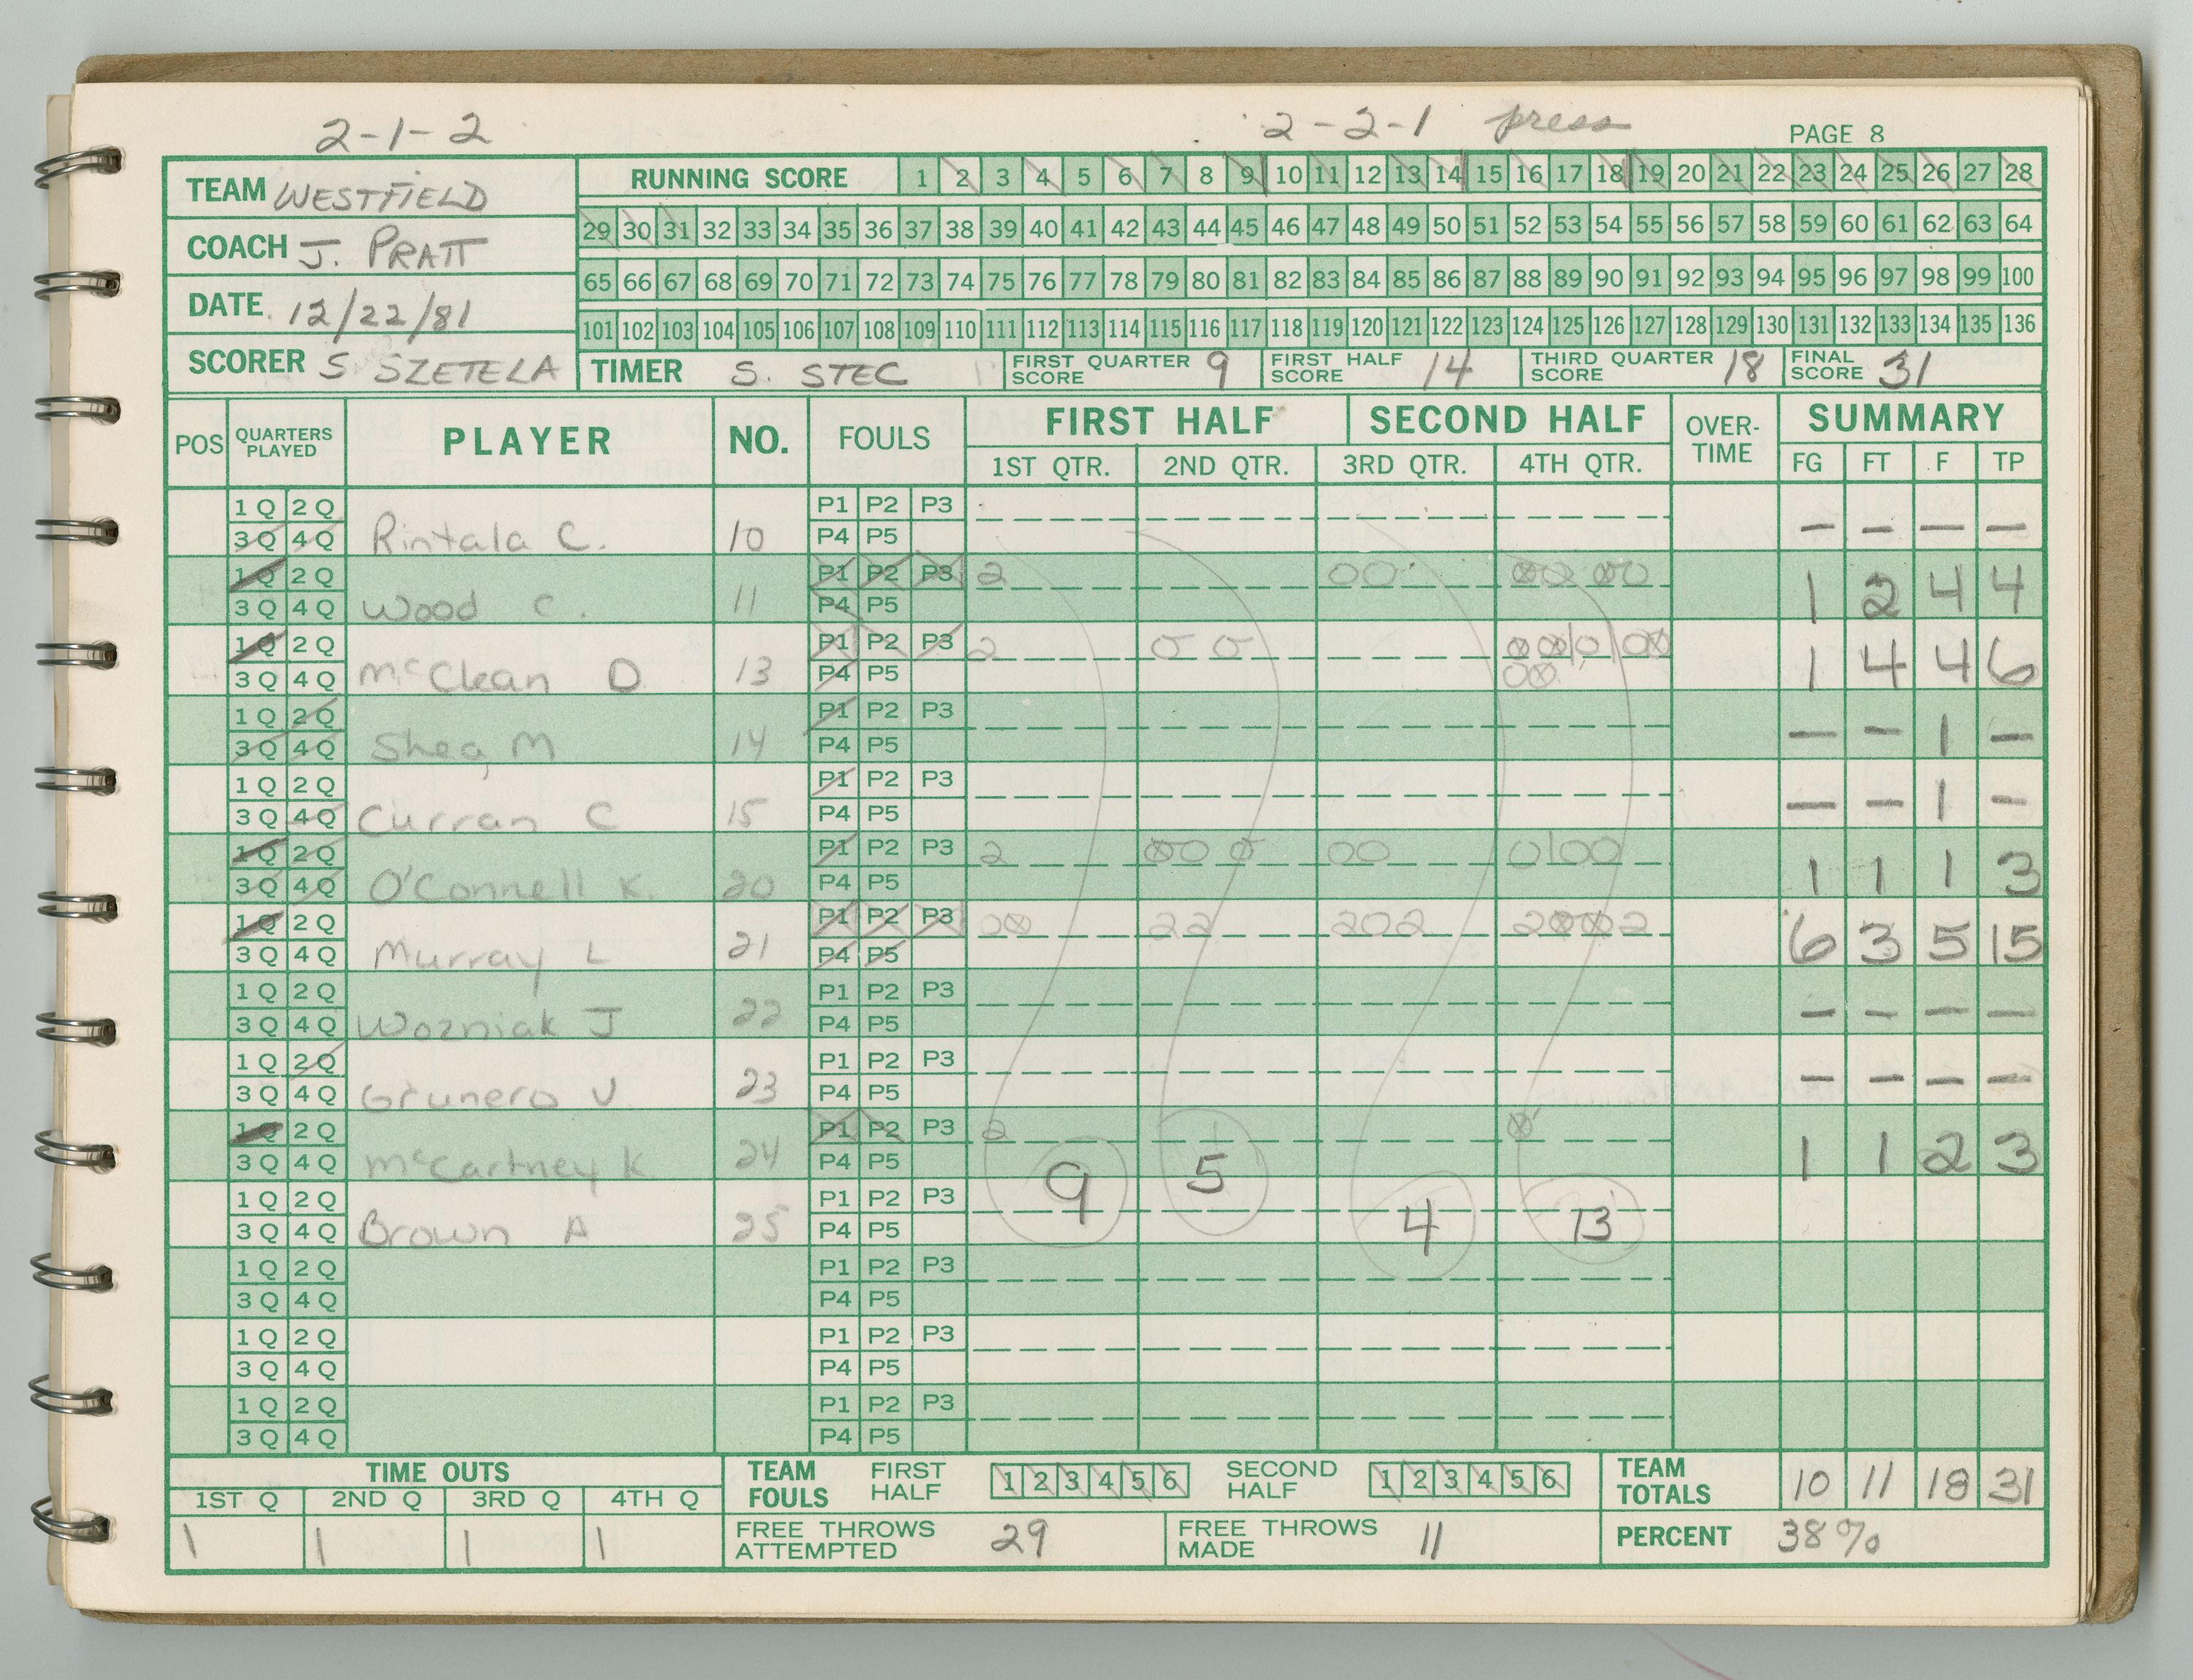 2-1-2 2-2-1 press PAGE 8
TEAM WESTFIELD
COACH J. PRATT
DATE 12/22/81
SCORER S SZETELA
RUNNING SCORE 1 2 3 4 5 6 7 8 9 10 11 12 13 14 15 16 17 18 19 20 21 22 23 24 25 26 27 28
29 30 31 32 33 34 35 36 37 38 39 40 41 42 43 44 45 46 47 48 49 50 51 52 53 54 55 56 57 58 59 60 61 62 63 64
65 66 67 68 69 70 71 72 73 74 75 76 77 78 79 80 81 82 83 84 85 86 87 88 89 90 91 92 93 94 95 96 97 98 99 100
101 102 103 104 105 106 107 108 109 110 111 112 113 114 115 116 117 118 119 120 121 122 123 124 125 126 127 128 129 130 131 132 133 134 135 136
TIMER S. STEC FIRST QUARTER SCORE 9 FIRST HALF SCORE 14 THIRD QUARTER SCORE 18 FINAL SCORE 31
POS QUARTERS PLAYED PLAYER NO. FOULS FIRST HALF SECOND HALF OVER-TIME SUMMARY
1ST QTR. 2ND QTR. 3RD QTR. 4TH QTR. FG FT F TP
1 Q 2 Q P1 P2 P3
3 Q 4 Q Rintala C. 10 P4 P5 — — — —
1 Q 2 Q P1 P2 P3 2 00 00 00
3 Q 4 Q Wood C. 11 P4 P5 1 2 4 4
1 Q 2 Q P1 P2 P3 2 0 0
3 Q 4 Q McClean D 13 P4 P5 1 4 4 6
1 Q 2 Q P1 P2 P3
3 Q 4 Q Shea, M 14 P4 P5 — — 1 —
1 Q 2 Q P1 P2 P3
3 Q 4 Q Curran C 15 P4 P5 — — 1 —
1 Q 2 Q P1 P2 P3 2 00 0 00 0|00
3 Q 4 Q O'Connell K. 20 P4 P5 1 1 1 3
1 Q 2 Q P1 P2 P3 00 22 202 20002
3 Q 4 Q Murray L 21 P4 P5 6 3 5 15
1 Q 2 Q P1 P2 P3
3 Q 4 Q Wozniak J 22 P4 P5 — — — —
1 Q 2 Q P1 P2 P3
3 Q 4 Q Grunero V 23 P4 P5 — — — —
1 Q 2 Q P1 P2 P3 2 0
3 Q 4 Q McCartney K 24 P4 P5 9 5 1 1 2 3
1 Q 2 Q P1 P2 P3
3 Q 4 Q Brown A 25 P4 P5 4 13
1 Q 2 Q P1 P2 P3
3 Q 4 Q P4 P5
1 Q 2 Q P1 P2 P3
3 Q 4 Q P4 P5
1 Q 2 Q P1 P2 P3
3 Q 4 Q P4 P5
TIME OUTS
1ST Q 2ND Q 3RD Q 4TH Q
1 1 1 1
TEAM FOULS FIRST HALF 1 2 3 4 5 6 SECOND HALF 1 2 3 4 5 6 TEAM TOTALS 10 11 18 31
FREE THROWS ATTEMPTED 29 FREE THROWS MADE 11 PERCENT 38%